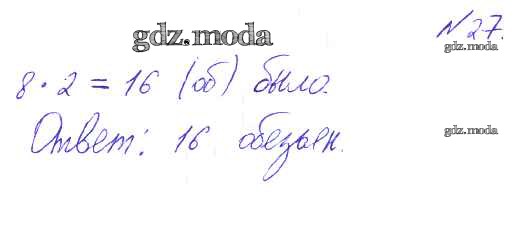 №27.
gdz.moda
gdz.moda
8 · 2 = 16 (об) было.
Ответ: 16 обезьян.
gdz.moda